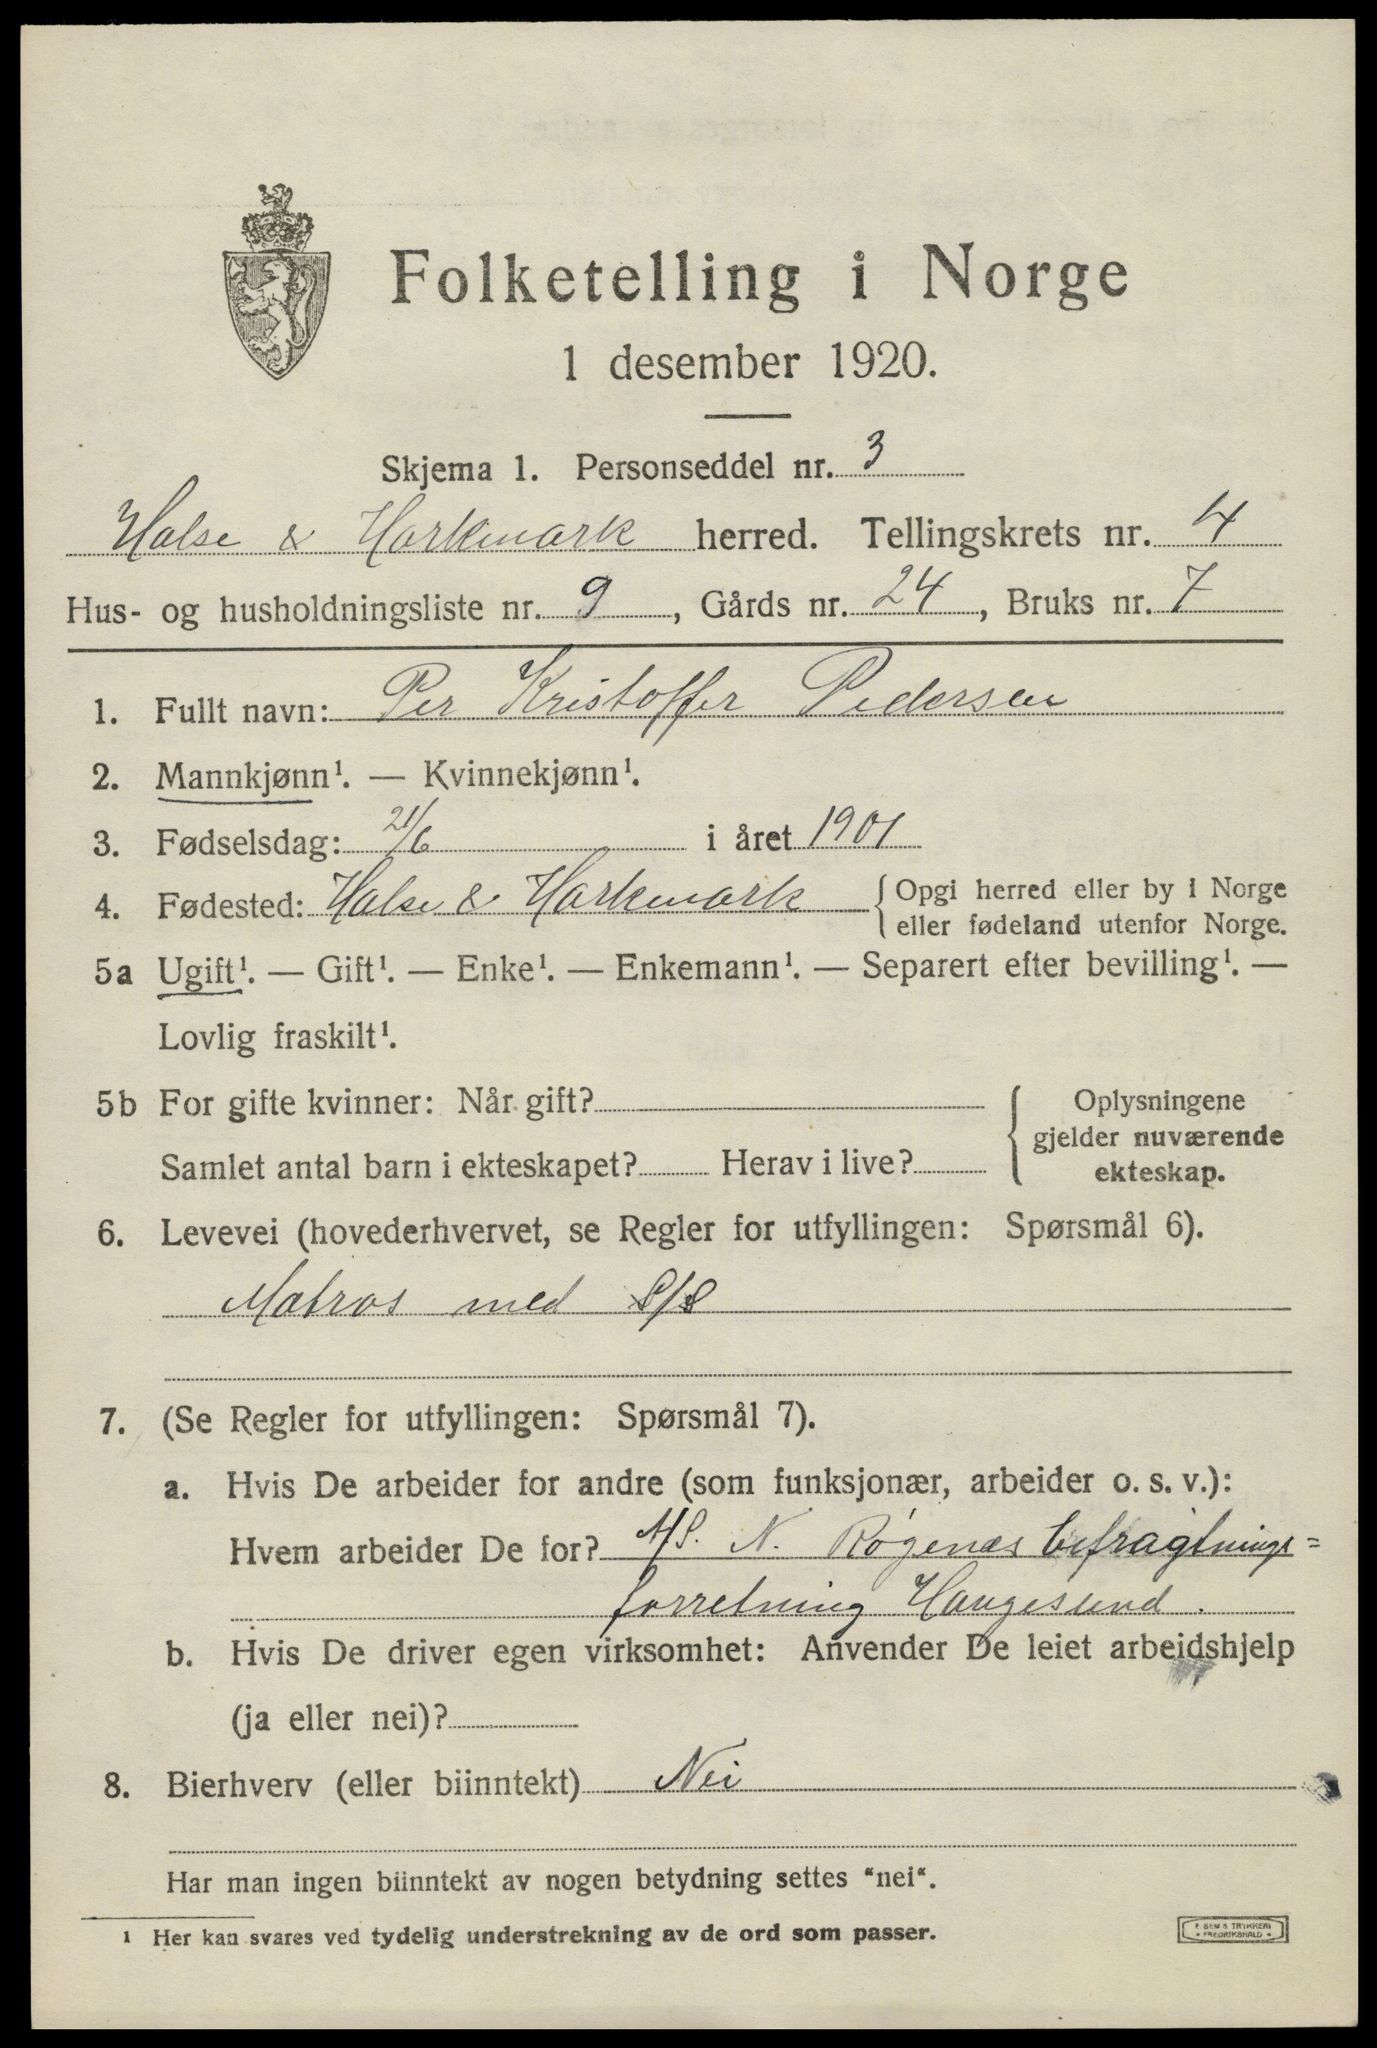 Folketelling i Norge
1 desember 1920.
Skjema 1. Personseddel nr. 3
Halse & Harkmark herred. Tellingskrets nr. 4
Hus- og husholdningsliste nr. 9, Gårds nr. 24, Bruks nr. 7
1. Fullt navn: Per Kristoffer Pedersen
2. Mannkjønn¹. — Kvinnekjønn¹.
3. Fødselsdag: 21/6 i året 1901
4. Fødested: Halse & Harkmark { Opgi herred eller by i Norge
eller fødeland utenfor Norge.
5a Ugift¹. — Gift¹. — Enke¹. — Enkemann¹. — Separert efter bevilling¹. —
Lovlig fraskilt¹.
5b For gifte kvinner: Når gift? { Oplysningene
gjelder nuværende
Samlet antal barn i ekteskapet? Herav i live? ekteskap.
6. Levevei (hovederhvervet, se Regler for utfyllingen: Spørsmål 6).
Matros med S/S
7. (Se Regler for utfyllingen: Spørsmål 7).
a. Hvis De arbeider for andre (som funksjonær, arbeider o. s. v.):
Hvem arbeider De for? A/S. N. Røgenæs befragtnings=
forretning Haugesund.
b. Hvis De driver egen virksomhet: Anvender De leiet arbeidshjelp
(ja eller nei)?
8. Bierhverv (eller biinntekt) Nei
Har man ingen biinntekt av nogen betydning settes "nei".
1 Her kan svares ved tydelig understrekning av de ord som passer.
E. SEM'S TRYKKERI
FREDRIKSHALD